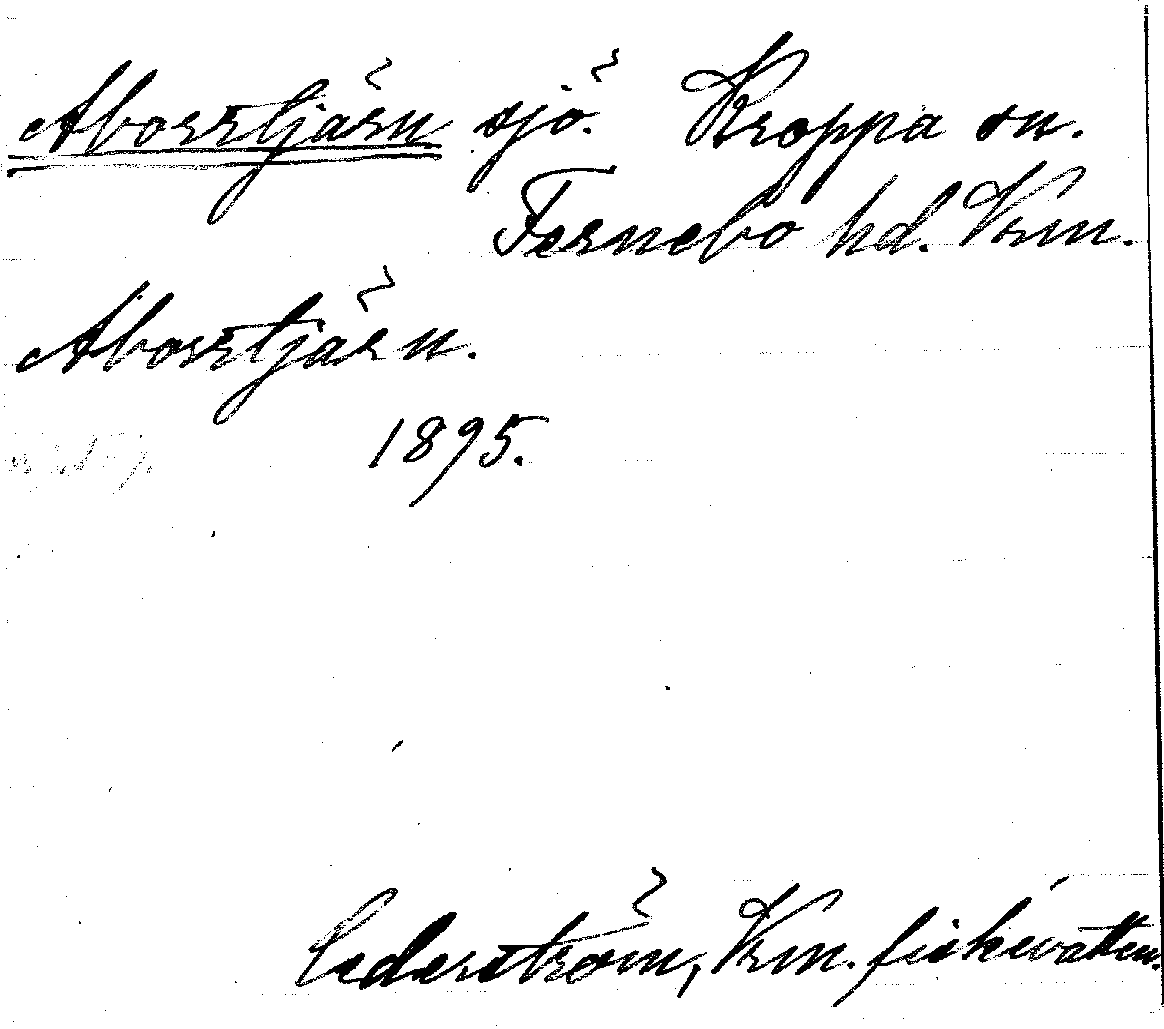 Aborrtjärn sjö. Kroppa sn.
Fernebo hd. Vrm.
Aborrtjärn.
1895.
Cederström, Vrm. fiskevatten.